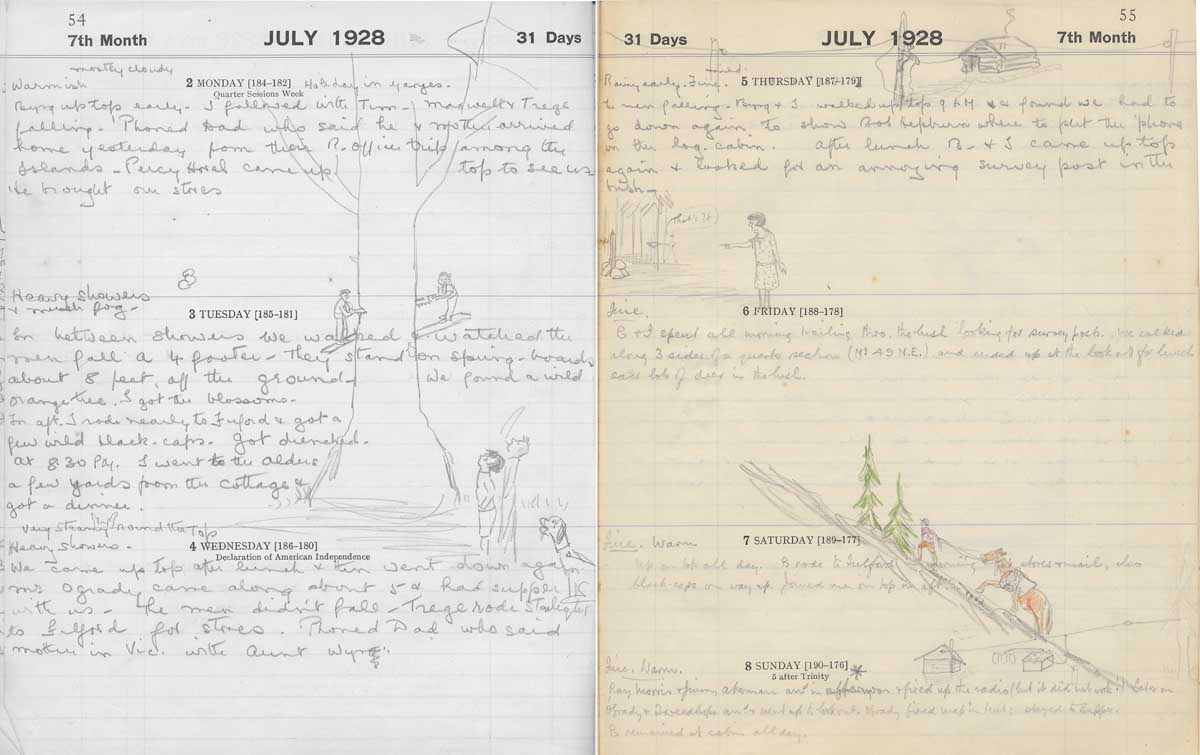 54
7th Month
JULY 1928
31 Days
mostly cloudy
Warmish
2 MONDAY [184-182] Holiday in Ganges.
Quarter Sessions Week
Byng up top early. I followed with Tim - Maxwell & Trege
falling. 'Phoned Dad who said he & mother arrived
home yesterday from their P. office trip among the
Islands - Percy Horel came up top to see us
He brought our stores
Heavy showers
& much fog -
3 TUESDAY [185-181]
In between showers we walked & watched the
men fall a 4 footer - They stand on spring-boards
about 8 feet, off the ground - We found a wild
orange tree. I got the blossoms -
In aft. I rode nearly to Fulford & got a
few wild black-caps. Got drenched.
at 8.30 P.M. I went to the alders
a few yards from the cottage &
got a dinner.
Very steamy round the Top
Heavy showers -
4 WEDNESDAY [186-180]
Declaration of American Independence
We came up top after lunch & then went down again
Mrs Ogrady came along about 5 & had supper
with us - The men didn't fall - Trege rode Starlight
to Fulford for stores. Phoned Dad who said
mother in Vic. with Aunt
55
31 Days
JULY 1928
7th Month
Rainy early. Fine.
5 THURSDAY [187-179]
men falling - Byng & I walked up top 9 AM & found we had to
go down again to show Bob Hepburn where to put the 'phone
in the log. cabin. After lunch B - & I came up top
again & looked for an annoying survey post in the
bush -
That's It
Fine.
6 FRIDAY [188-178]
B & I spent all morning trailing thro. the bush looking for survey posts. We walked
along 3 sides of a quarter section (No 49 N.E.) and ended up at the look out for lunch
of deer in the bush.
Fine. Warm
7 SATURDAY [189-177]
Up on top all day. B rode to Fulford morning stores & mail,
black caps on way up. Joined me on top
Fine. Warm.
8 SUNDAY [190-176]
5 after Trinity
Ray Morris & Jimmy Akerman in afternoon & fixed up the radio (but it did not work.) Later on
Ogrady & & went up to look out. Ogrady fixed map in tent; stayed to supper.
B remained at cabin all day.